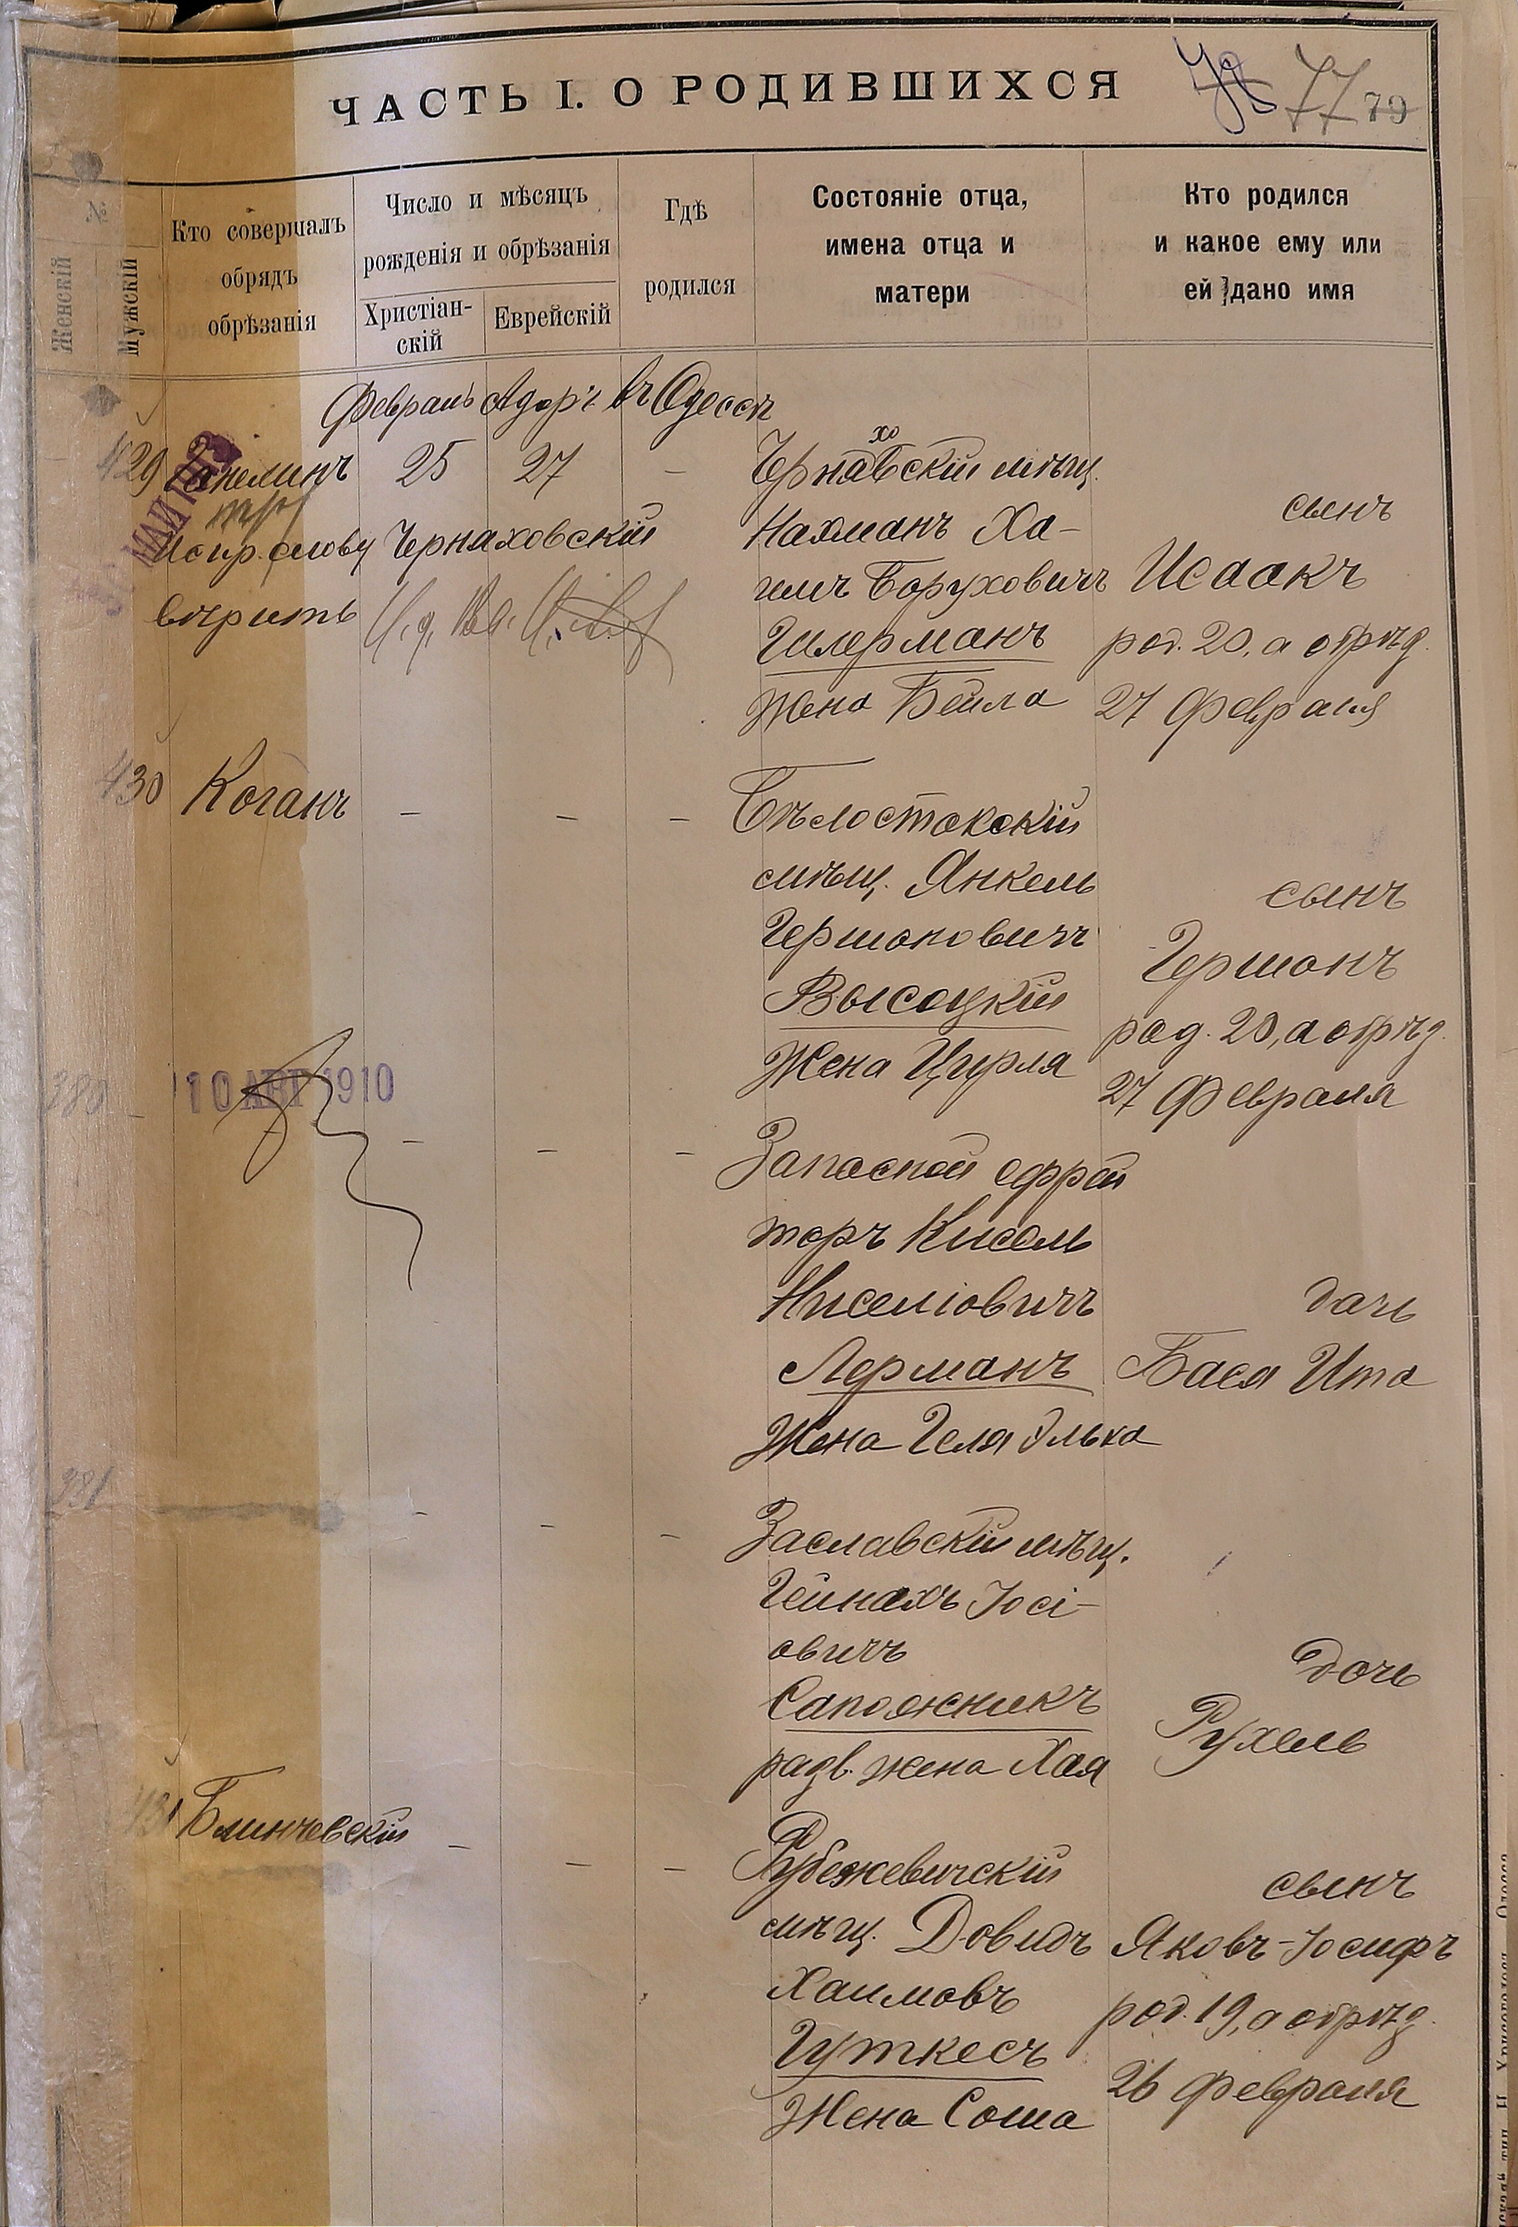 ЧАСТЬ I. О РОДИВШИХСЯ
77 79
№
Женскій
Мужскій
Кто совершалъ
обрядъ
обрѣзанія
Число и мѣсяцъ
рожденія и обрѣзанія
Христіан-
скій
Еврейскій
Гдѣ
родился
Состояніе отца,
имена отца и
матери
Кто родился
и какое ему или
ей дано имя
Февраль Адаръ въ Одессѣ
429
25 27 –
Испр. слову Черняховскій
вѣрить
хо
Чернявскій мѣщ.
Нахманъ Ха-
имъ Боруховичъ
Гилерманъ
жена Бейла
сынъ
Исаакъ
род. 20, а обрѣз.
27 Февраля
430 Коганъ – – –
Бѣлостокскій
мѣщ. Янкель
Гершоновичъ
Высоцкій
жена Цирля
сынъ
Гершонъ
род. 20, а обрѣз.
27 Февраля
380 – 10 АВГ 1910 – – –
Запасной ефрей
торъ Кисель
Киселіовичъ
Лерманъ
жена Геля Элька
дочь
Бася Ита
381 – – –
Заславскій мѣщ.
Гейнахъ Іосі-
овичъ
Сапожникъ
разв. жена Хая
дочь
Рухель
431 Блинчевскій – – –
Рубежевичскій
мѣщ. Довидъ
Хаимовъ
Гуткесъ
жена Соша
сынъ
Яковъ-Іосифъ
род. 19, а обрѣз.
26 Февраля